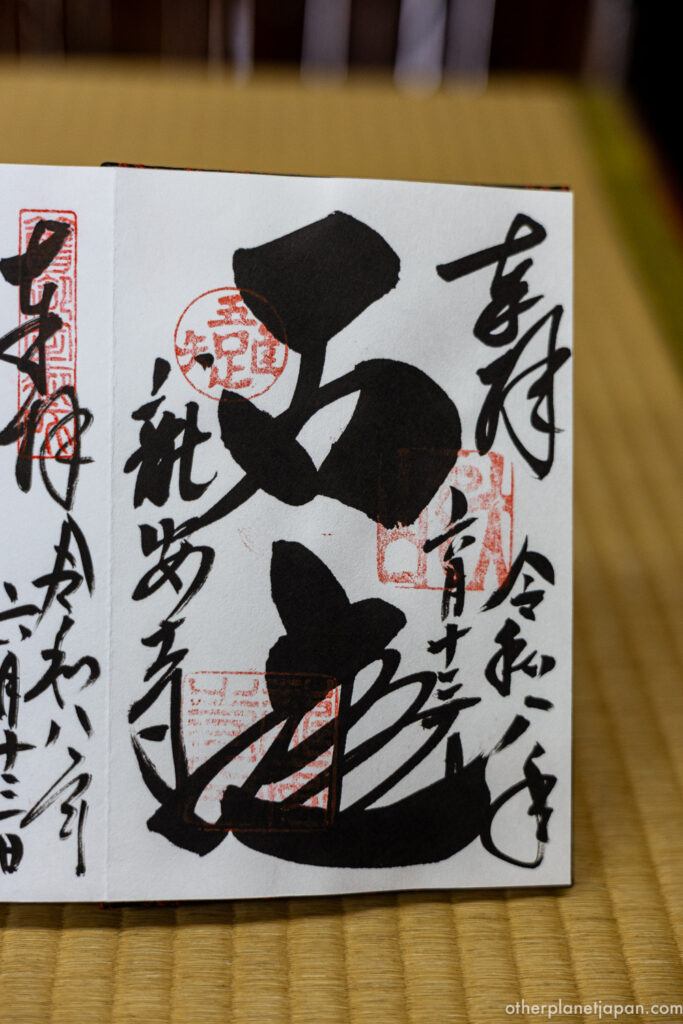 奉拝
令和八年
六月十三日
石庭
吾唯足知
龍安寺
奉拝
令和八年
六月十三日
otherplanetjapan.com